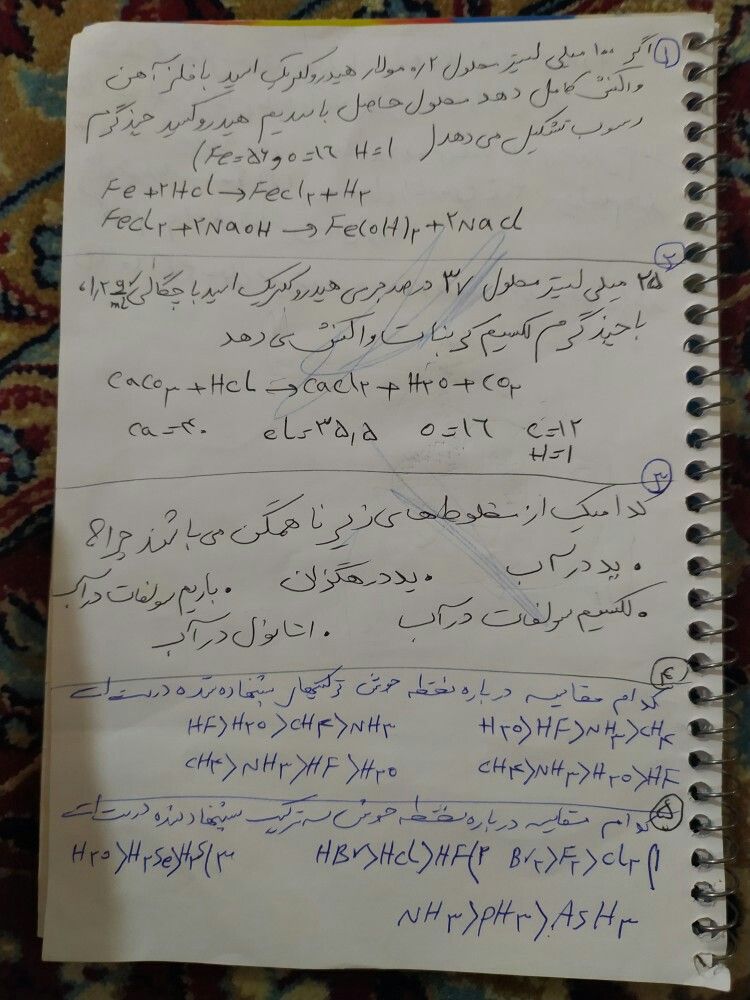 ۱ اگر ۱۰۰ میلی لیتر محلول ۰/۲ مولار هیدروکلریک اسید با فلز آهن
واکنش کامل دهد محلول حاصل با سدیم هیدروکسید چند گرم
رسوب تشکیل می دهد (Fe=۵۶ و o=۱۶ H=۱)
Fe + ۲HCl → FeCl۲ + H۲
FeCl۲ + ۲NaOH → Fe(OH)۲ + ۲NaCl
۲
۲۵ میلی لیتر محلول ۳۷ درصد جرمی هیدروکلریک اسید با چگالی ۱٫۲ g/mL،
با چند گرم کلسیم کربنات واکنش می دهد
CaCo۳ + HCl → CaCl۲ + H۲O + CO۲
Ca=۴۰ cl=۳۵,۵ O=۱۶ C=۱۲
H=۱
۳
کدامیک از مخلوط های زیر ناهمگن می باشند چرا؟
• ید در آب • ید در هگزان • باریم سولفات در آب
• کلسیم سولفات در آب • اتانول در آب
۴
کدام مقایسه درباره نقطه جوش ترکیبهای پیشنهاد شده درست است
H۲O>HF>NH۳>CH۴ HF>H۲O>CH۴>NH۳
CH۴>NH۳>H۲O>HF CH۴>NH۳>HF>H۲O
۵
کدام مقایسه درباره نقطه جوش سه ترکیب پیشنهاد شده درست است
۱) Br۲>F۲>Cl۲ ۲) HBr>HCl>HF ۳) H۲O>H۲Se>H۲S
NH۳>PH۳>AsH۳